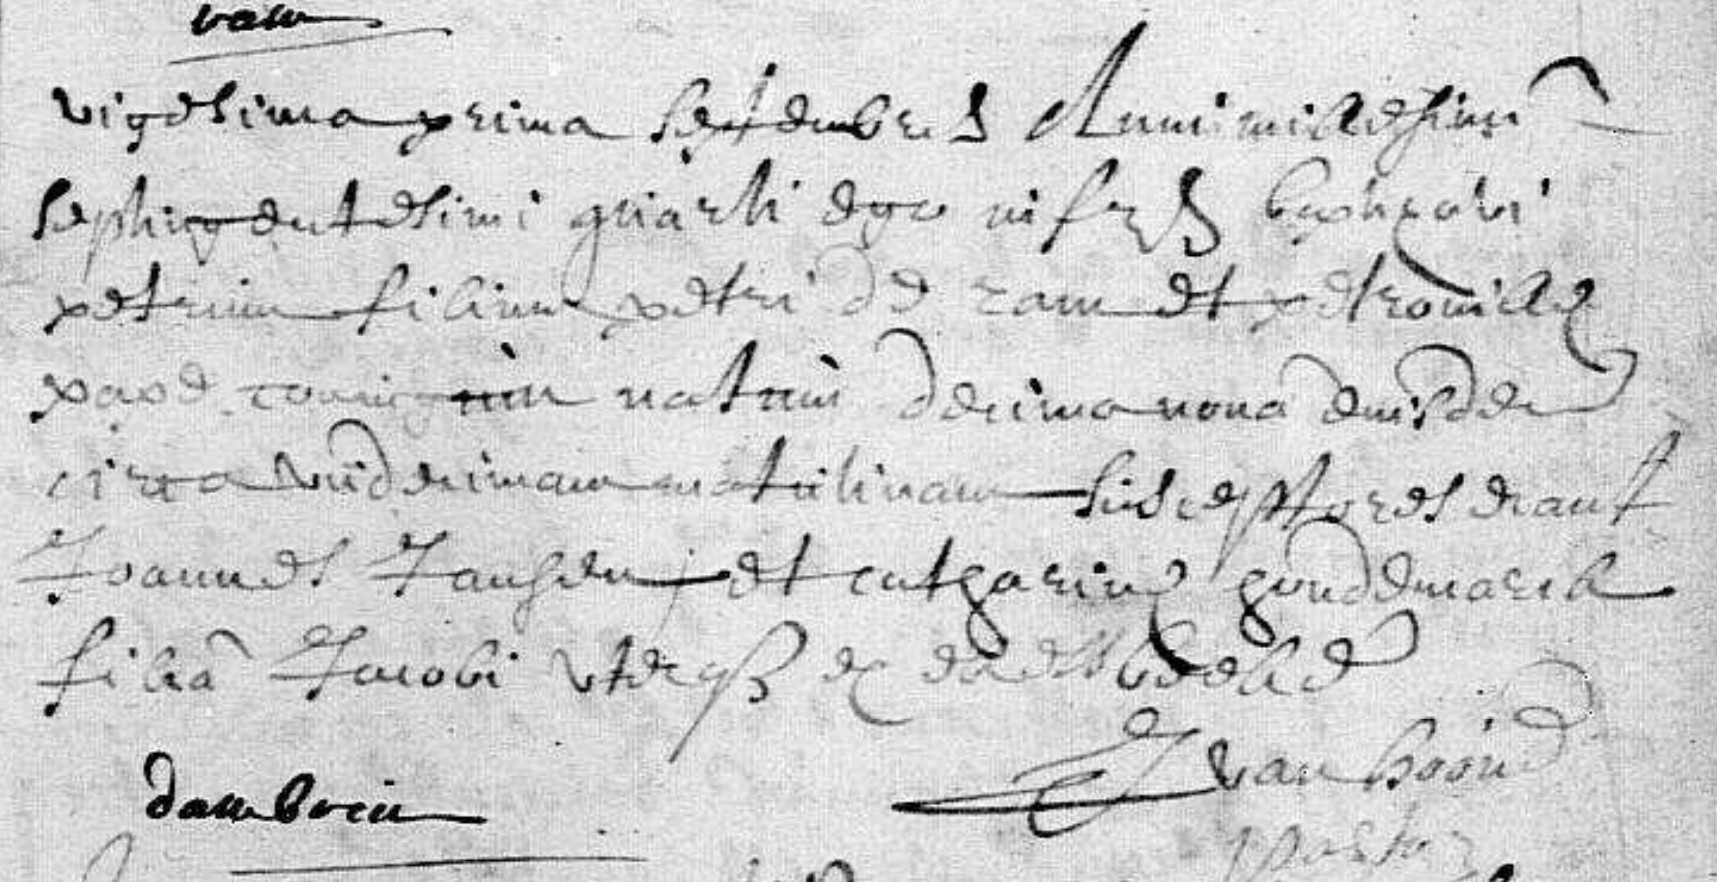 vigesima prima septembris Anni millesimi
septingentesimi quarti ego infrs baptizavi
petrum filium petri de ram et petronillæ
pape conjugum natum decima nona eiusdem
circa undecimam matutinam susceptores erant
Joannes Jansen et catharina gondemarck
filia Jacobi uterqs ex
J van
pastor